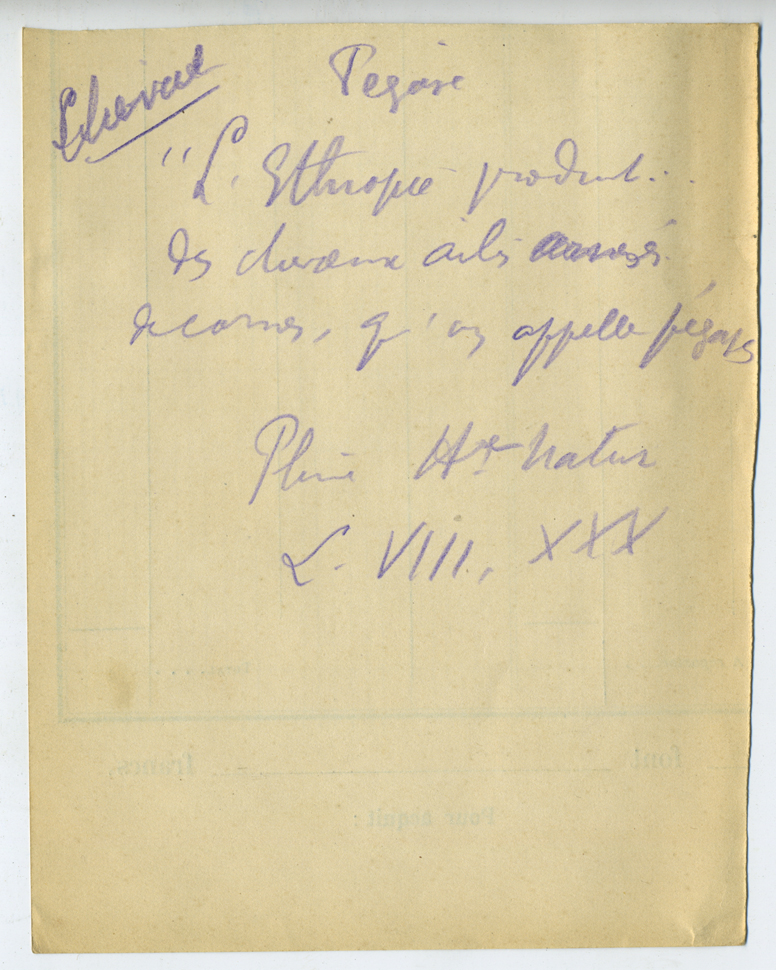 Cheval
Pegase
"L'Ethiopie produit...
des chevaux ailés armés
de cornes, qu'on appelle pégases
Pline Hre Natur
L. VIII., XXX
font
francs.
Pour acquit: